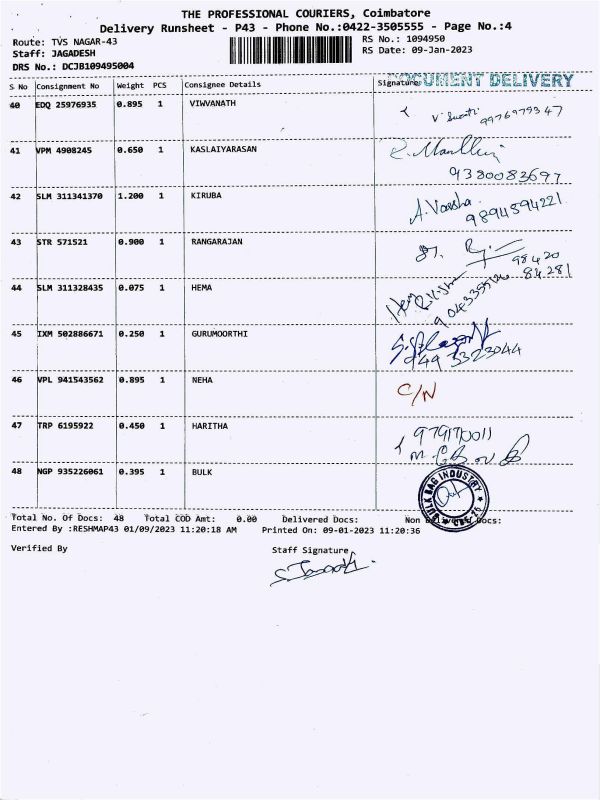 THE PROFESSIONAL COURIERS, Coimbatore
Delivery Runsheet - P43 - Phone No.:0422-3505555 - Page No.:4
Route: TVS NAGAR-43 RS No.: 1094950
Staff: JAGADESH RS Date: 09-Jan-2023
DRS No.: DCJB109495004
DOCUMENT DELIVERY
S No Consignment No Weight PCS Consignee Details Signature
40 EDQ 25976935 0.895 1 VIWVANATH
9976979347
41 VPM 4908245 0.650 1 KASLAIYARASAN
9380083697
42 SLM 311341370 1.200 1 KIRUBA A. Varsha
9894594221
43 STR 571521 0.900 1 RANGARAJAN
98420
84281
44 SLM 311328435 0.075 1 HEMA
45 IXM 502886671 0.250 1 GURUMOORTHI
46 VPL 941543562 0.895 1 NEHA C/N
47 TRP 6195922 0.450 1 HARITHA
48 NGP 935226061 0.395 1 BULK BULK BAG INDUSTRY
Total No. Of Docs: 48 Total COD Amt: 0.00 Delivered Docs: Non Delivered Docs:
Entered By :RESHMAP43 01/09/2023 11:20:18 AM Printed On: 09-01-2023 11:20:36
Verified By Staff Signature